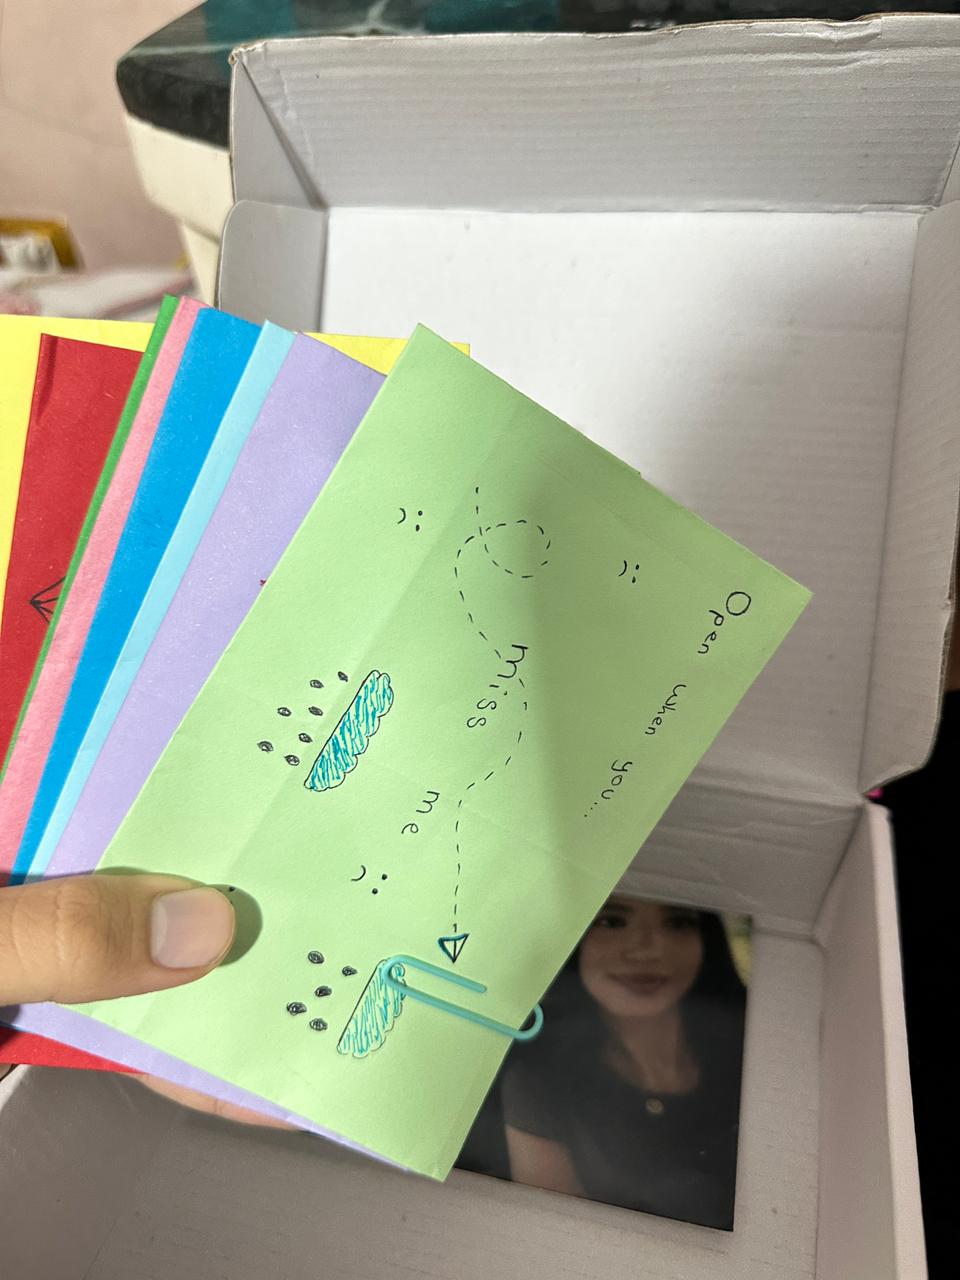 Open when you...
miss
me